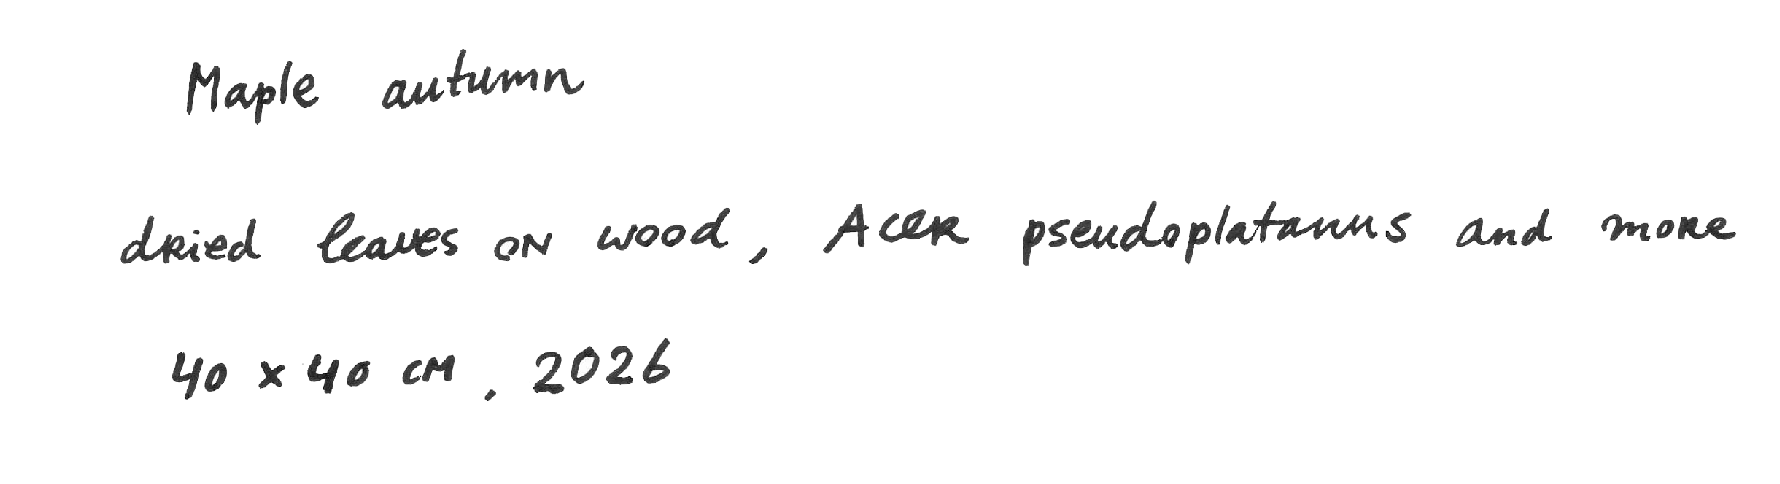 Maple autumn
dried leaves on wood, Acer pseudoplatanus and more
40 x 40 cm, 2026